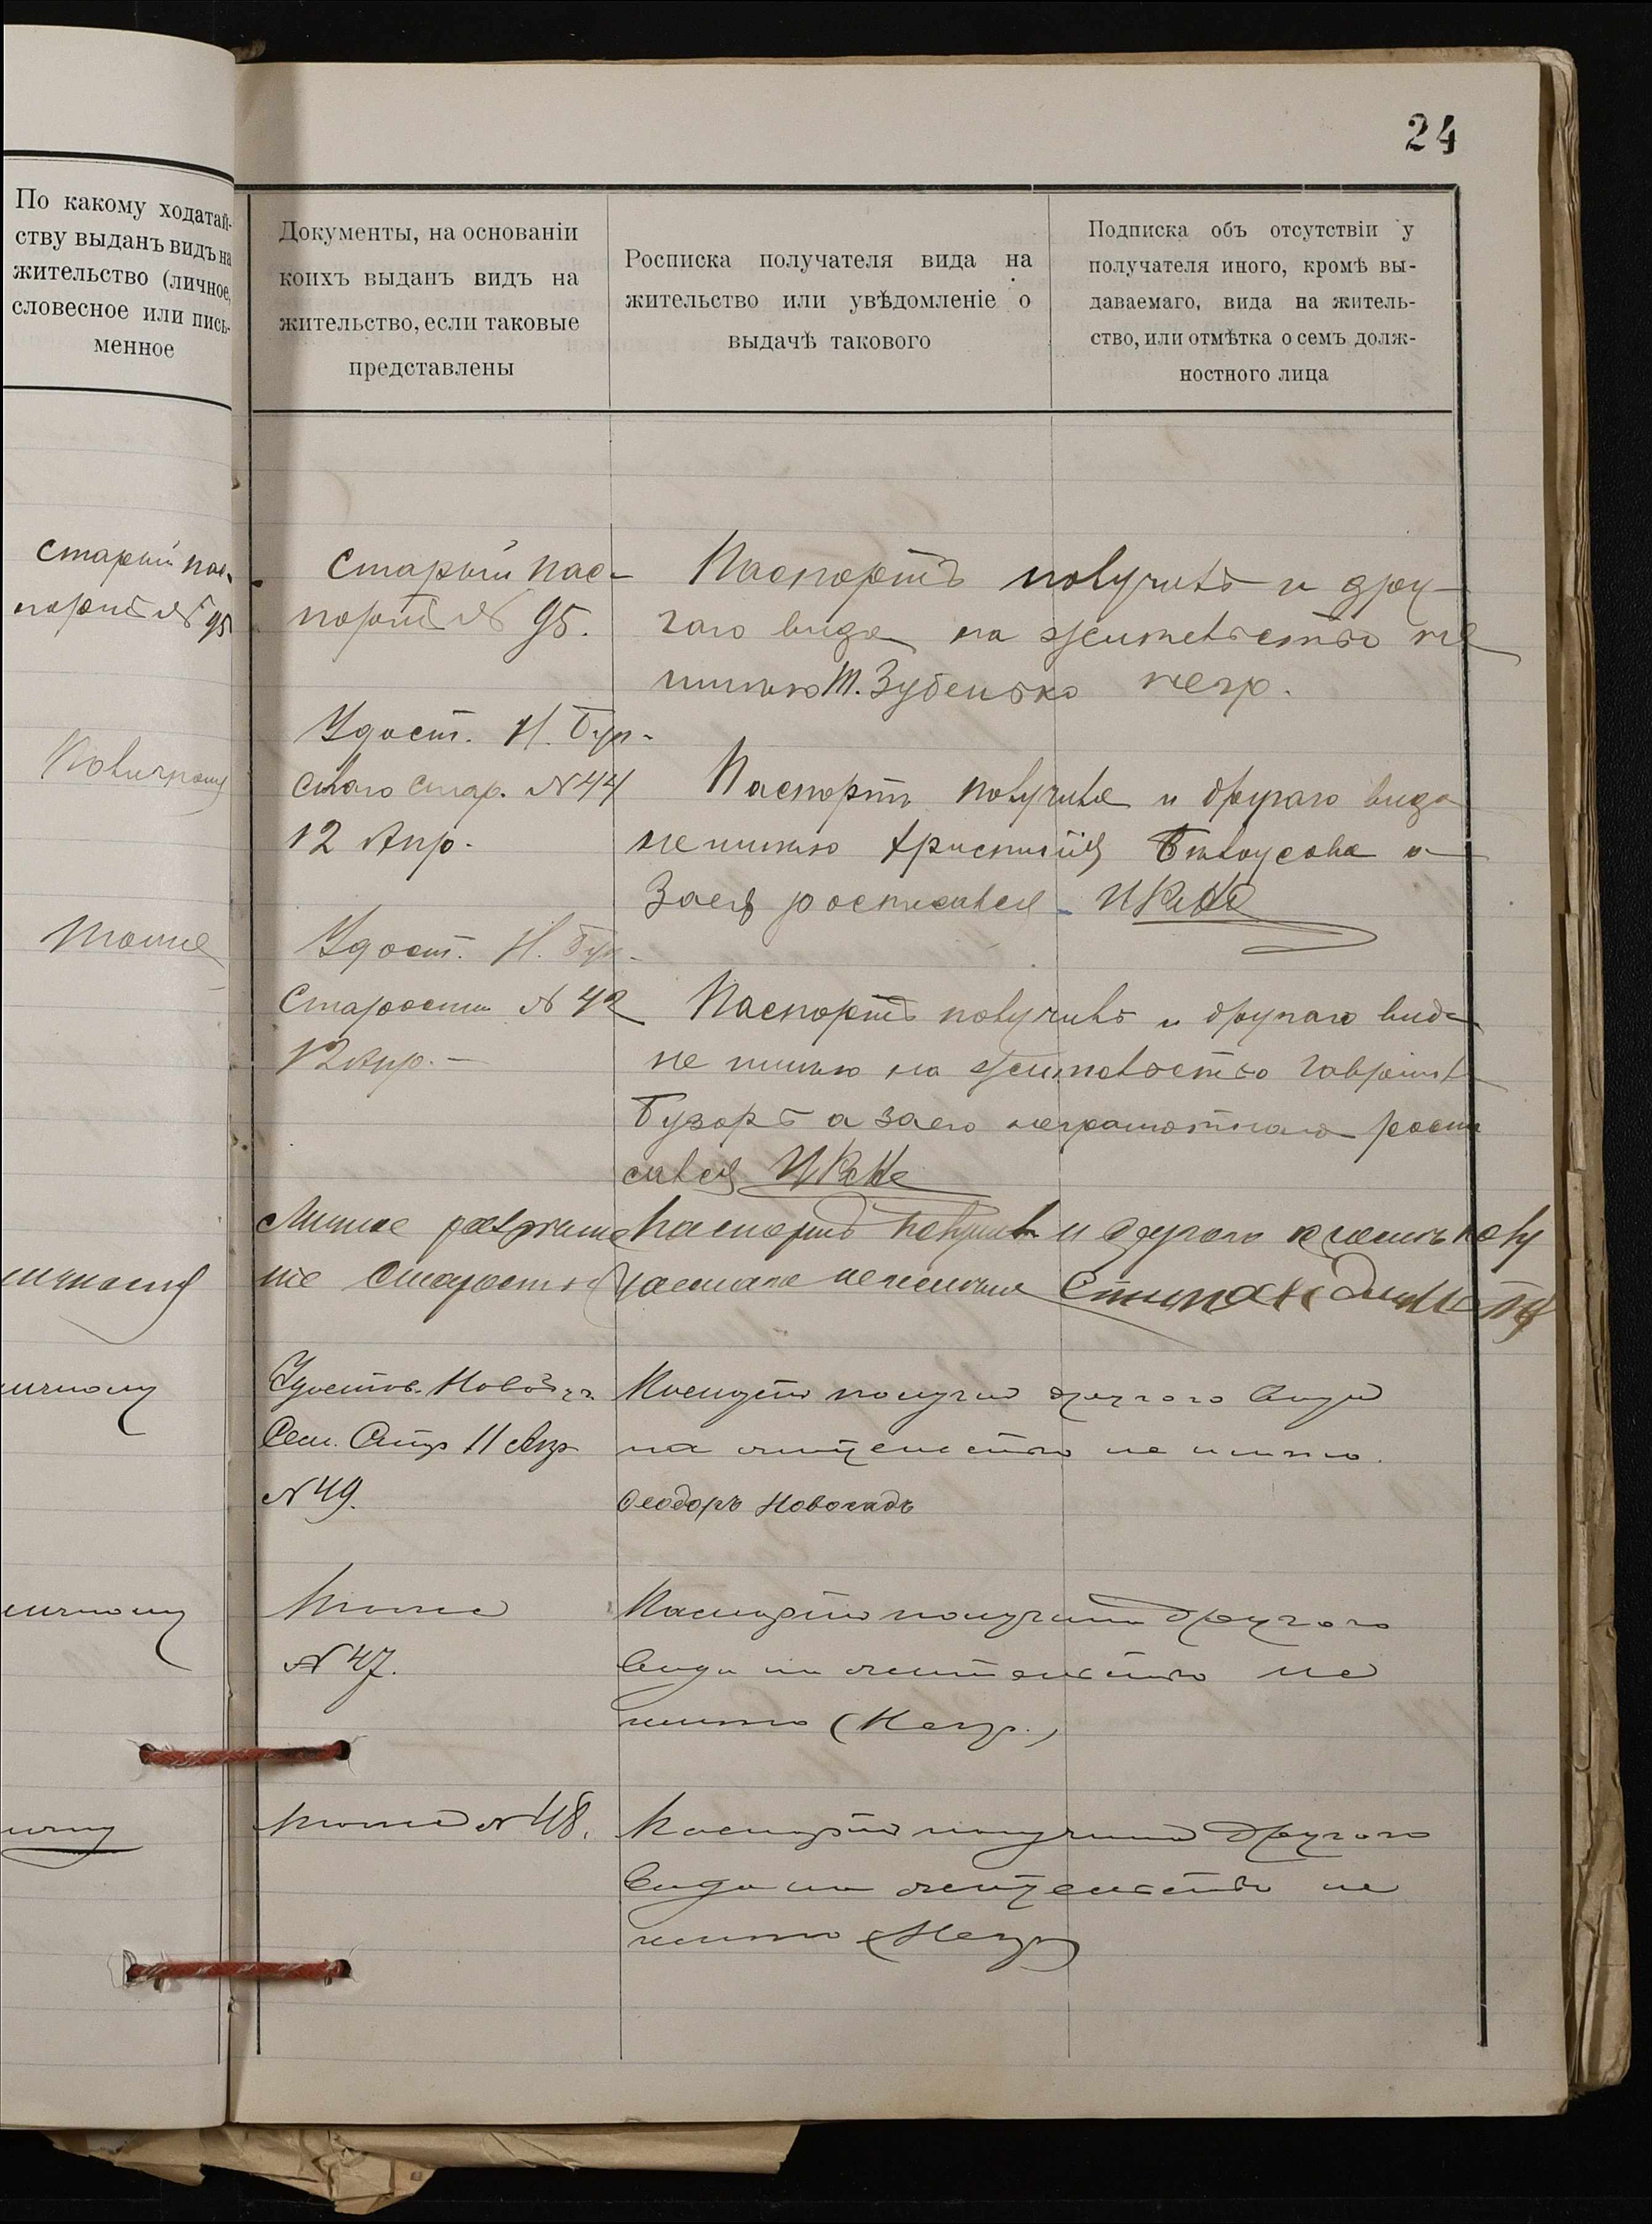 24
По какому ходатай-
ству выданъ видъ на
жительство (личное,
словесное или пись-
менное
Документы, на основаніи
коихъ выданъ видъ на
жительство, если таковые
представлены
Росписка получателя вида на
жительство или увѣдомленіе о
выдачѣ такового
Подписка объ отсутствіи у
получателя иного, кромѣ вы-
даваемаго, вида на житель-
ство, или отмѣтка о семъ долж-
ностного лица
Старый пас-
портъ № 95
Старый пас-
портъ № 95.
Паспортъ получилъ и дру-
гаго вида на жительство не
имѣю Т. Зубенько негр.
Удост. Н. Бур-
Стар. № 44
12 Апр.
Паспортъ получила и другаго вида
не имѣю Бѣлоусова а
росписался
Тоже
Удост. Н. Бур-
Старосты № 42
12 Апр. —
Паспортъ получилъ и другаго вида
не имѣю на жительство Гавріилъ
Бузоръ а за его неграмотнаго роспи
сался
Личное
Старосты
Паспортъ получилъ и
Степан
личному
Удостов.
Сел. Стар. 11 Апр
№ 49.
Паспортъ получил другого вида
на жительство не имѣю.
Ѳеодоръ Новогадъ
личному
Тоже
№ 47.
Паспортъ получила другого
вида на жительство не
имѣю (Негр.)
Тоже № 48.
Паспортъ получила другого
вида на жительство не
имѣю (Негр)